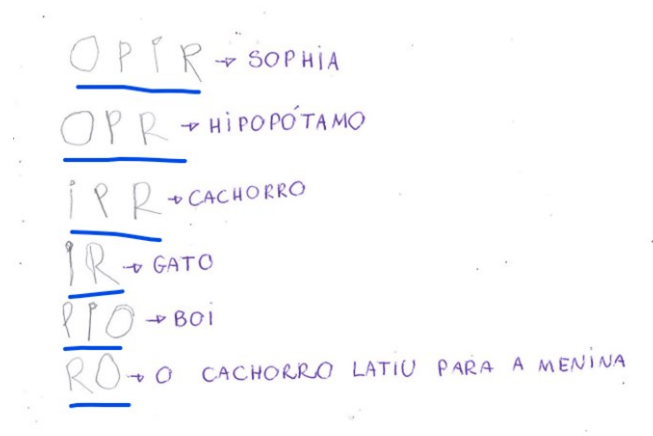 OPIR → SOPHIA
OPR → HIPOPÓTAMO
IPR → CACHORRO
IR → GATO
PIO → BOI
RO → O CACHORRO LATIU PARA A MENINA